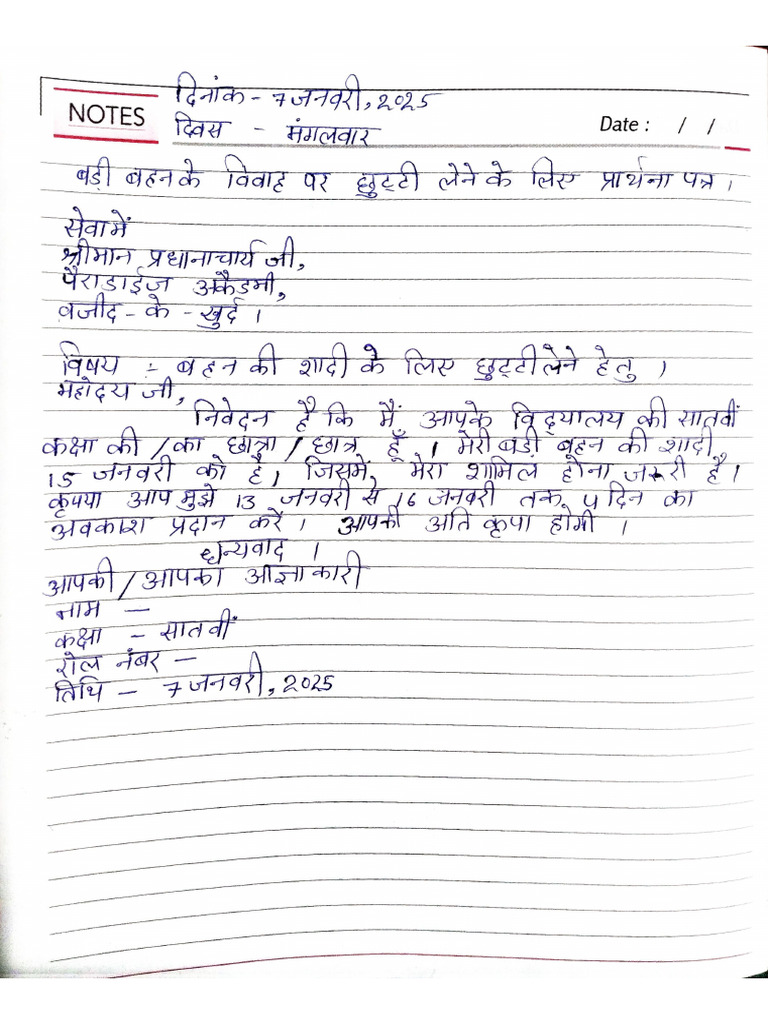 दिनांक - 7 जनवरी, 2025
NOTES
दिवस - मंगलवार
Date : / /
बड़ी बहन के विवाह पर छुट्टी लेने के लिए प्रार्थना पत्र ।
सेवा में
श्रीमान प्रधानाचार्य जी,
पैराडाईज अकैडमी,
वजीद - के - खुर्द ।
विषय :- बहन की शादी के लिए छुट्टी लेने हेतु ।
महोदय जी,
निवेदन है कि मैं आपके विद्यालय की सातवीं
कक्षा की / का छात्रा / छात्र हूँ । मेरी बड़ी बहन की शादी
15 जनवरी को है। जिसमें, मेरा शामिल होना जरूरी है।
कृपया आप मुझे 13 जनवरी से 16 जनवरी तक 4 दिन का
अवकाश प्रदान करें । आपकी अति कृपा होगी ।
धन्यवाद ।
आपकी / आपका आज्ञाकारी
नाम -
कक्षा - सातवीं
रोल नंबर -
तिथि - 7 जनवरी, 2025